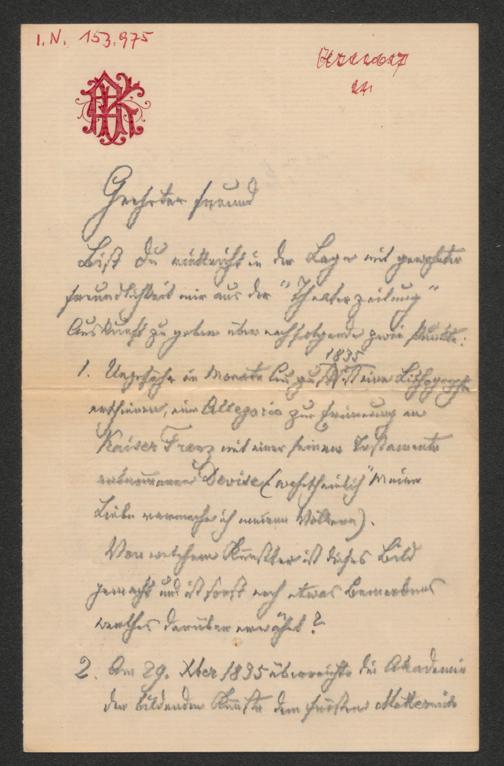 I.N. 153.975
Geehrter Freund
Bist Du vielleicht in der Lage mit gewohnter
Freundlichkeit mir aus der "Theaterzeitung"
Auskunft zu geben über nachfolgende zwei Punkte:
1. Ungefähr im Monate August 1835 ist eine Lithographie
erschienen, eine Allegorie zur Erinnerung an
Kaiser Franz mit einer seinem Testamente
entnommenen Devise (wahrscheinlich "Meine
Liebe vermache ich meinen Völkern).
Von welchem Künstler ist dieses Bild
gemacht und ist sonst noch etwas Bemerkens
werthes darüber erwähnt?
2. Am 29. Xber 1835 überreichte die Akademie
der bildenden Künste dem Fürsten Metternich